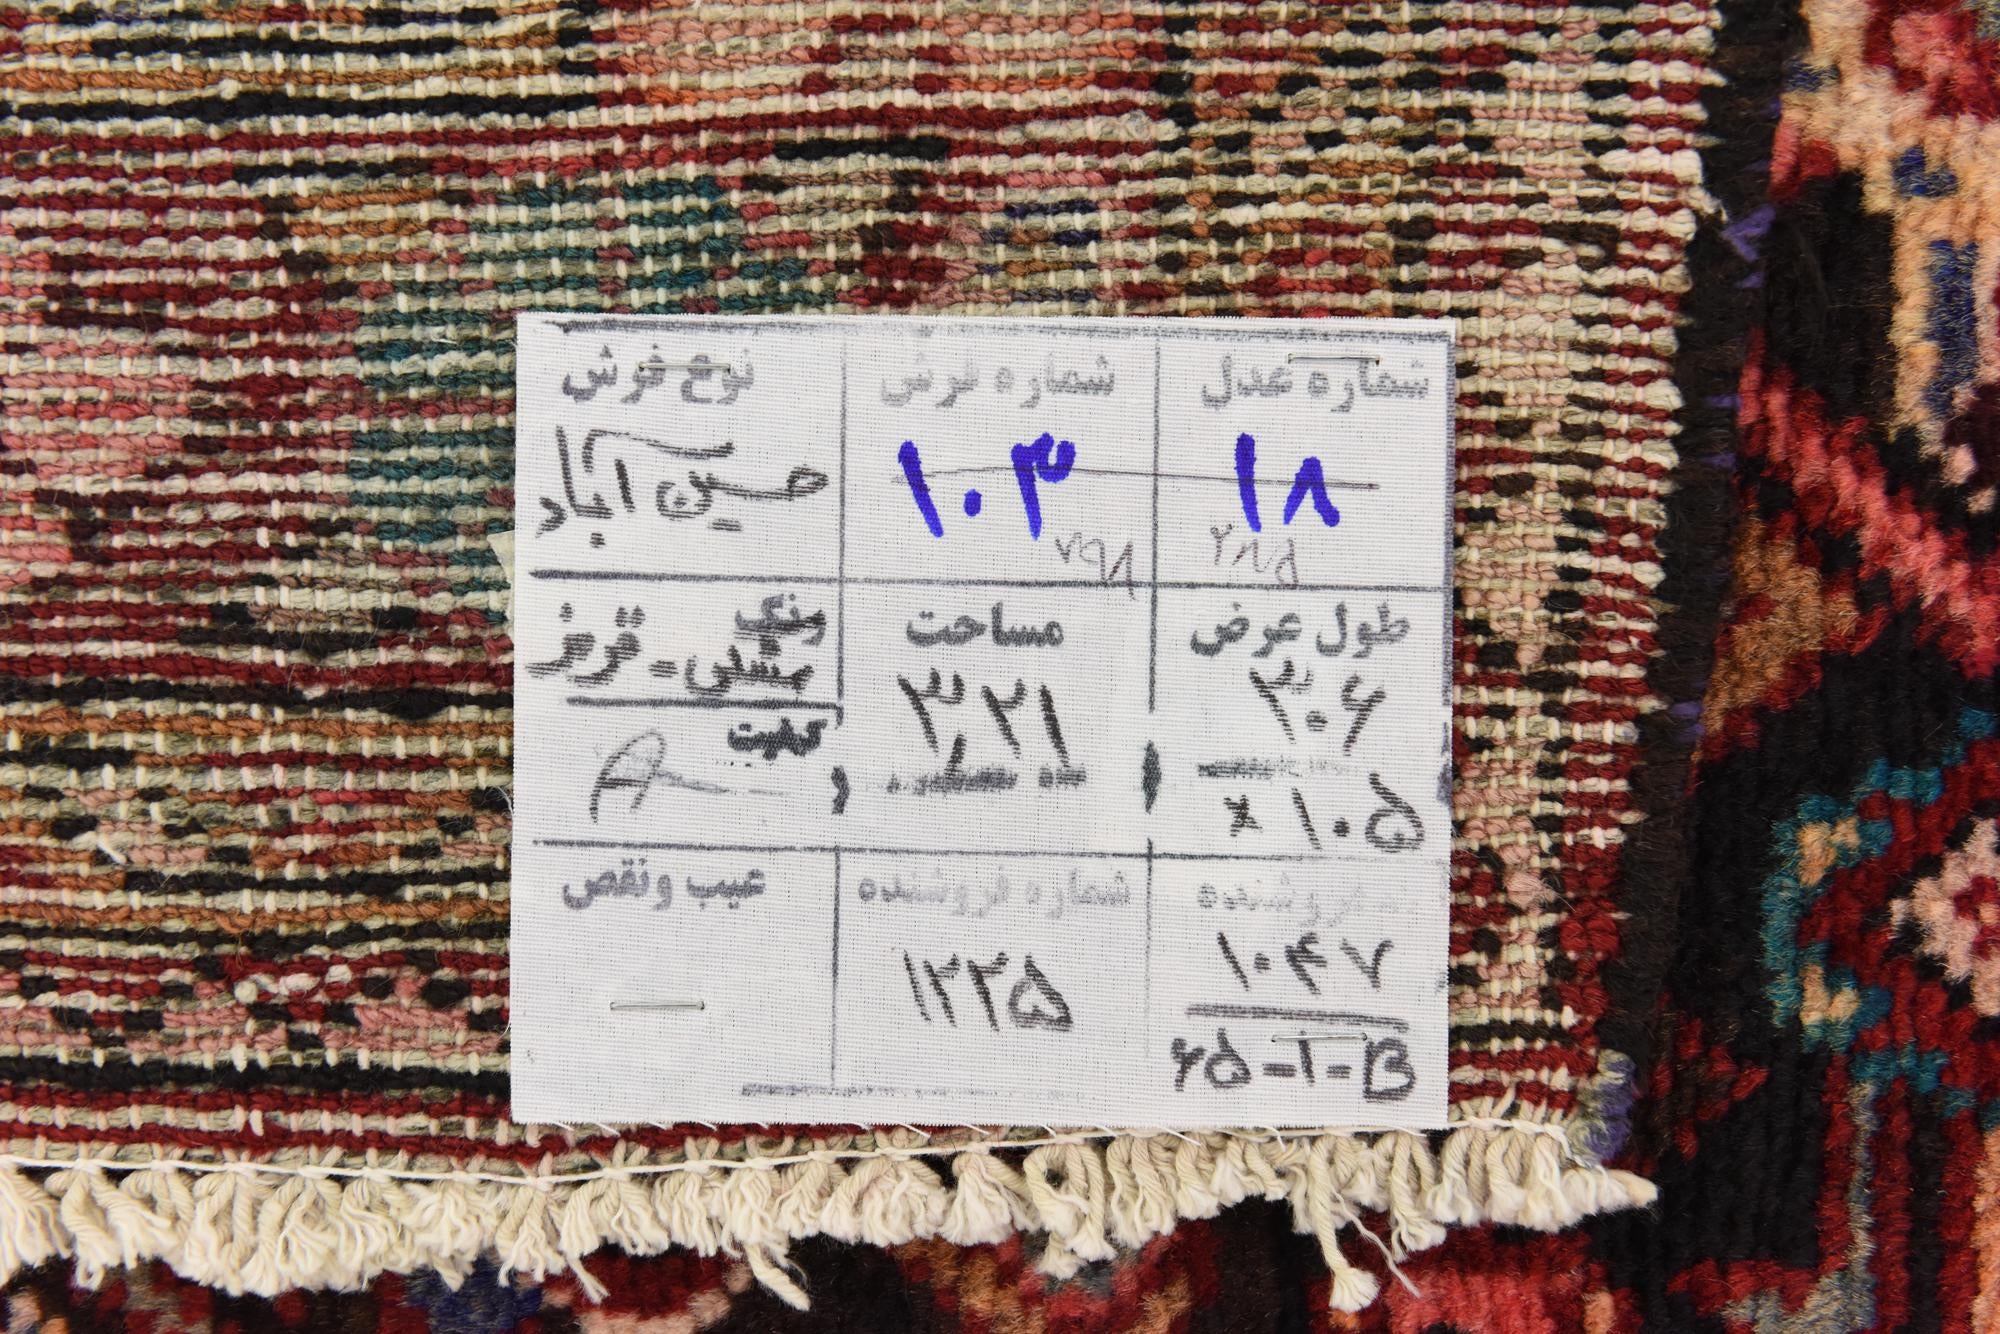 شماره عدل
۱۸
۲۸۵
شماره فرش
۱۰۳
۷۹۸
نوع فرش
حسین آباد
طول عرض
۳۰۶
× ۱۰۵
مساحت
۳,۲۱
رنگ
مشکی - قرمز
کیفیت
A
فروشنده
۱۰۴۷
۲۵-۱-B
شماره فروشنده
۱۲۲۵
عیب ونقص